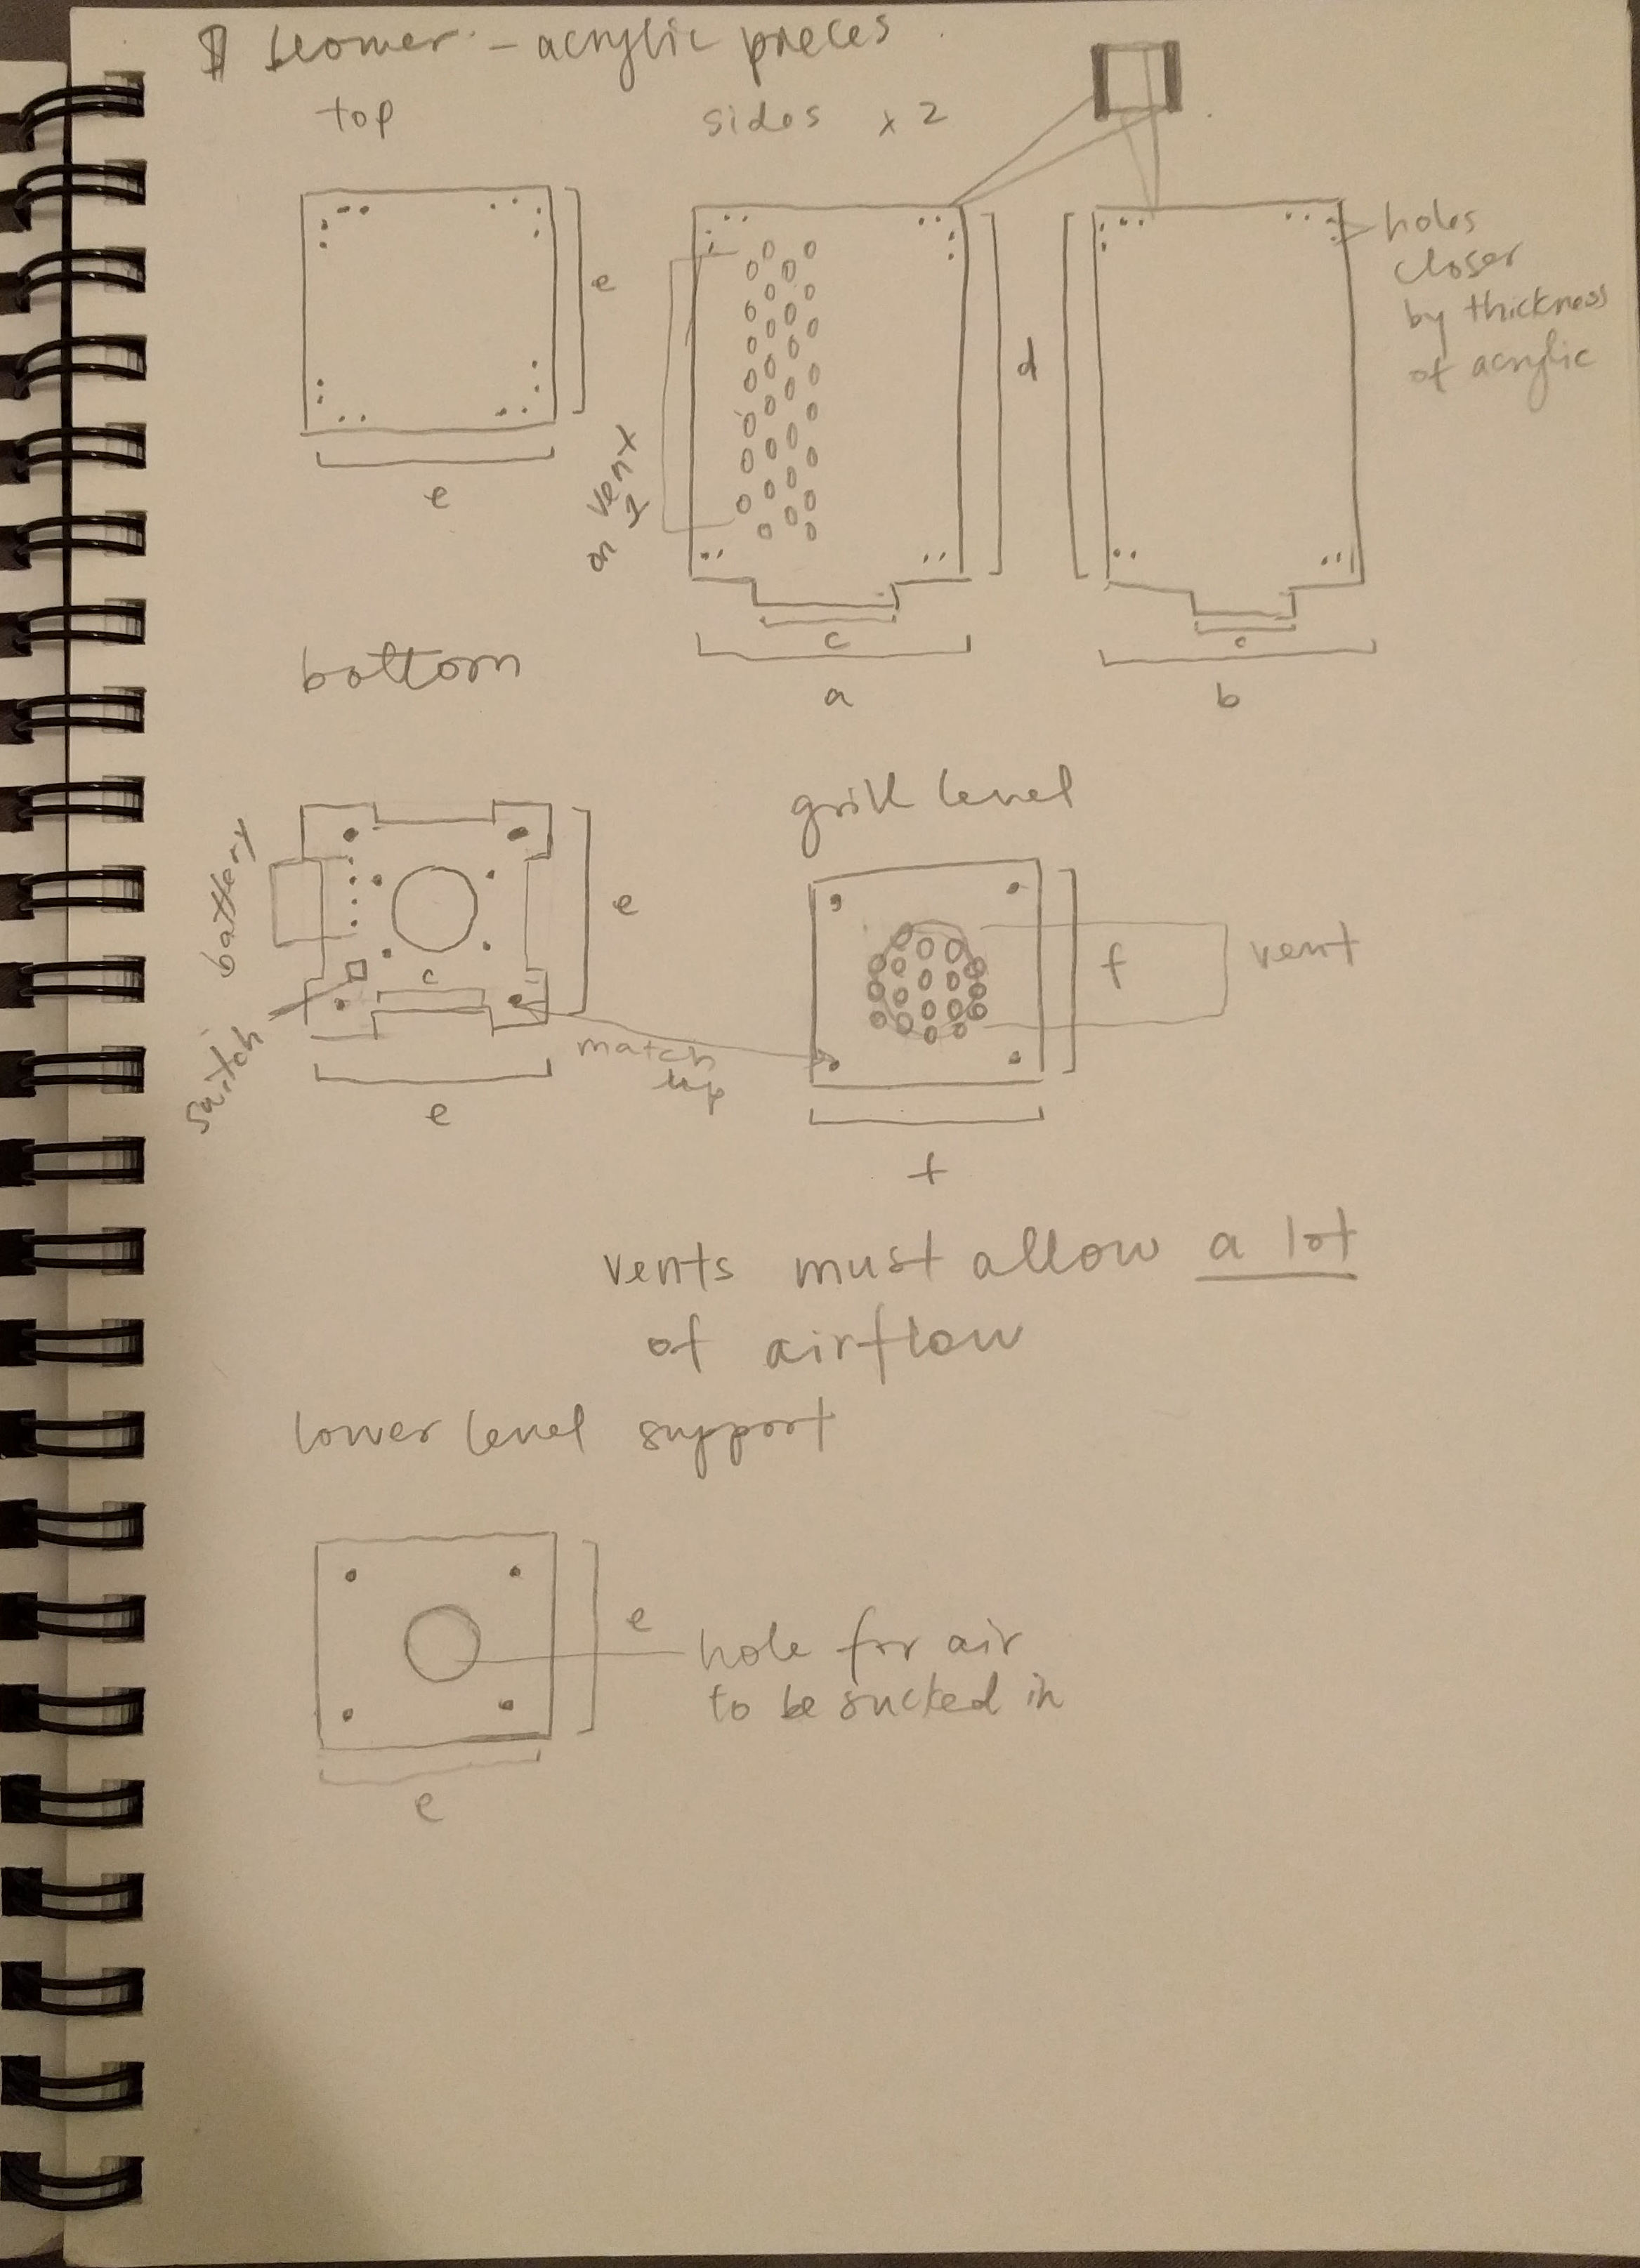 - acrylic pieces
top
sides x 2
e
e
on vent
1
d
holes
closer
by thickness
of acrylic
c
a
c
b
bottom
grill level
battery
e
c
switch
e
match
up
f
vent
f
vents must allow a lot
of airflow
lower level support
e
hole for air
to be sucked in
e